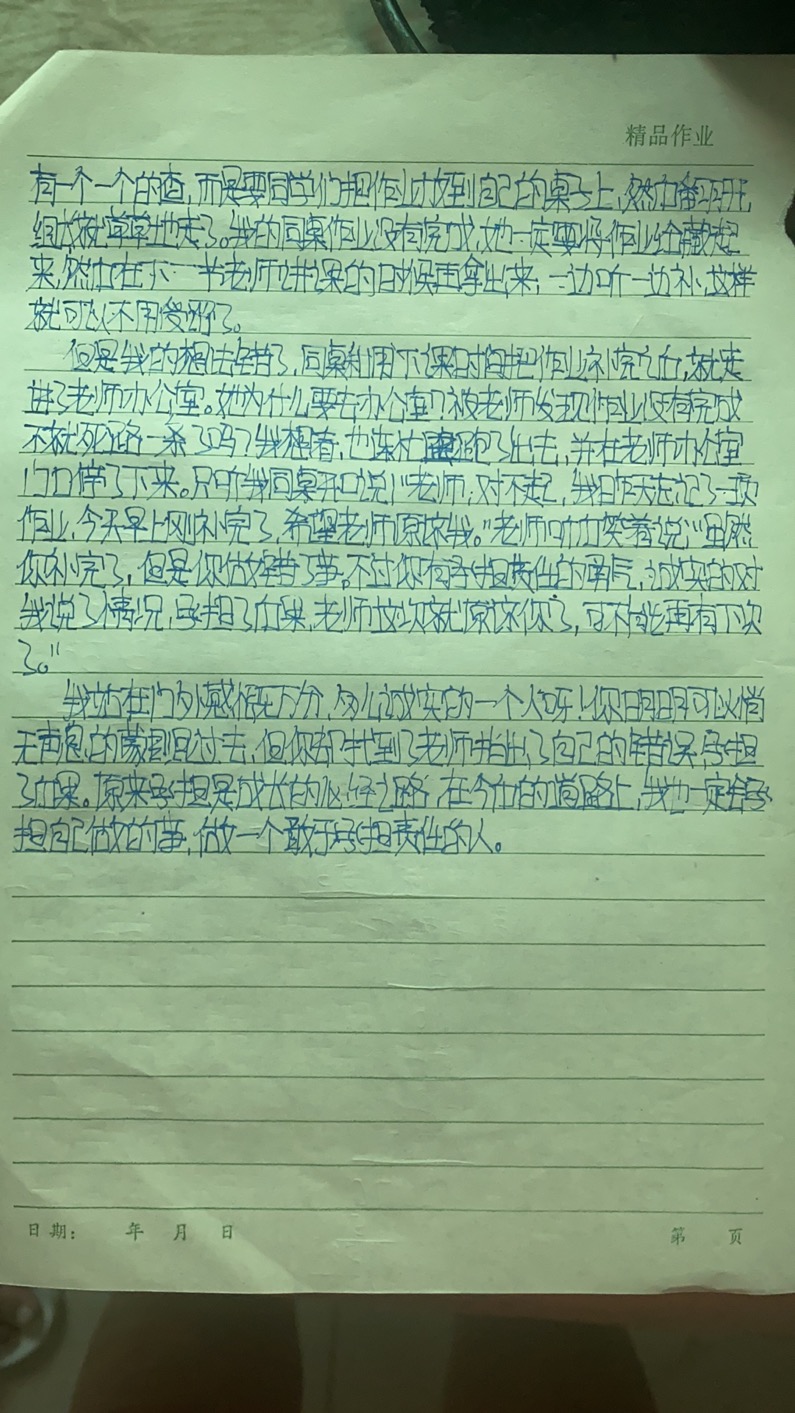 精品作业
有一个一个的查,而是要同学们把作业放到自己的桌子上,然后翻开,
组长就草草地走了。我的同桌作业没有完成,她一定要将作业给藏起
来,然后在下一节老师讲课的时候再拿出来,一边听一边补,这样
就可以不用受罚了。
但是我的想法错了,同桌利用下课时间把作业补完之后,就走
进了老师办公室。她为什么要去办公室?被老师发现作业没有完成
不就死路一条了吗?我想着,也连忙跑了出去,并在老师办公室
门口停了下来。只听我同桌开口说:"老师,对不起,我昨天忘记了一项
作业,今天早上刚补完了,希望老师原谅我。"老师听后笑着说:"虽然
你补完了,但是你做错了事。不过你有承担责任的勇气,诚实的对
我说了情况,承担了后果,老师这次就原谅你了,可不能再有下次
了。"
我站在门外感慨万分,多么诚实的一个人呀!你明明可以悄
无声息的蒙混过去,但你却找到了老师指出了自己的错误,承担
了后果。原来承担是成长的必经之路,在今后的道路上,我也一定会承
担自己做的事,做一个敢于承担责任的人。
日期: 年 月 日
第 页